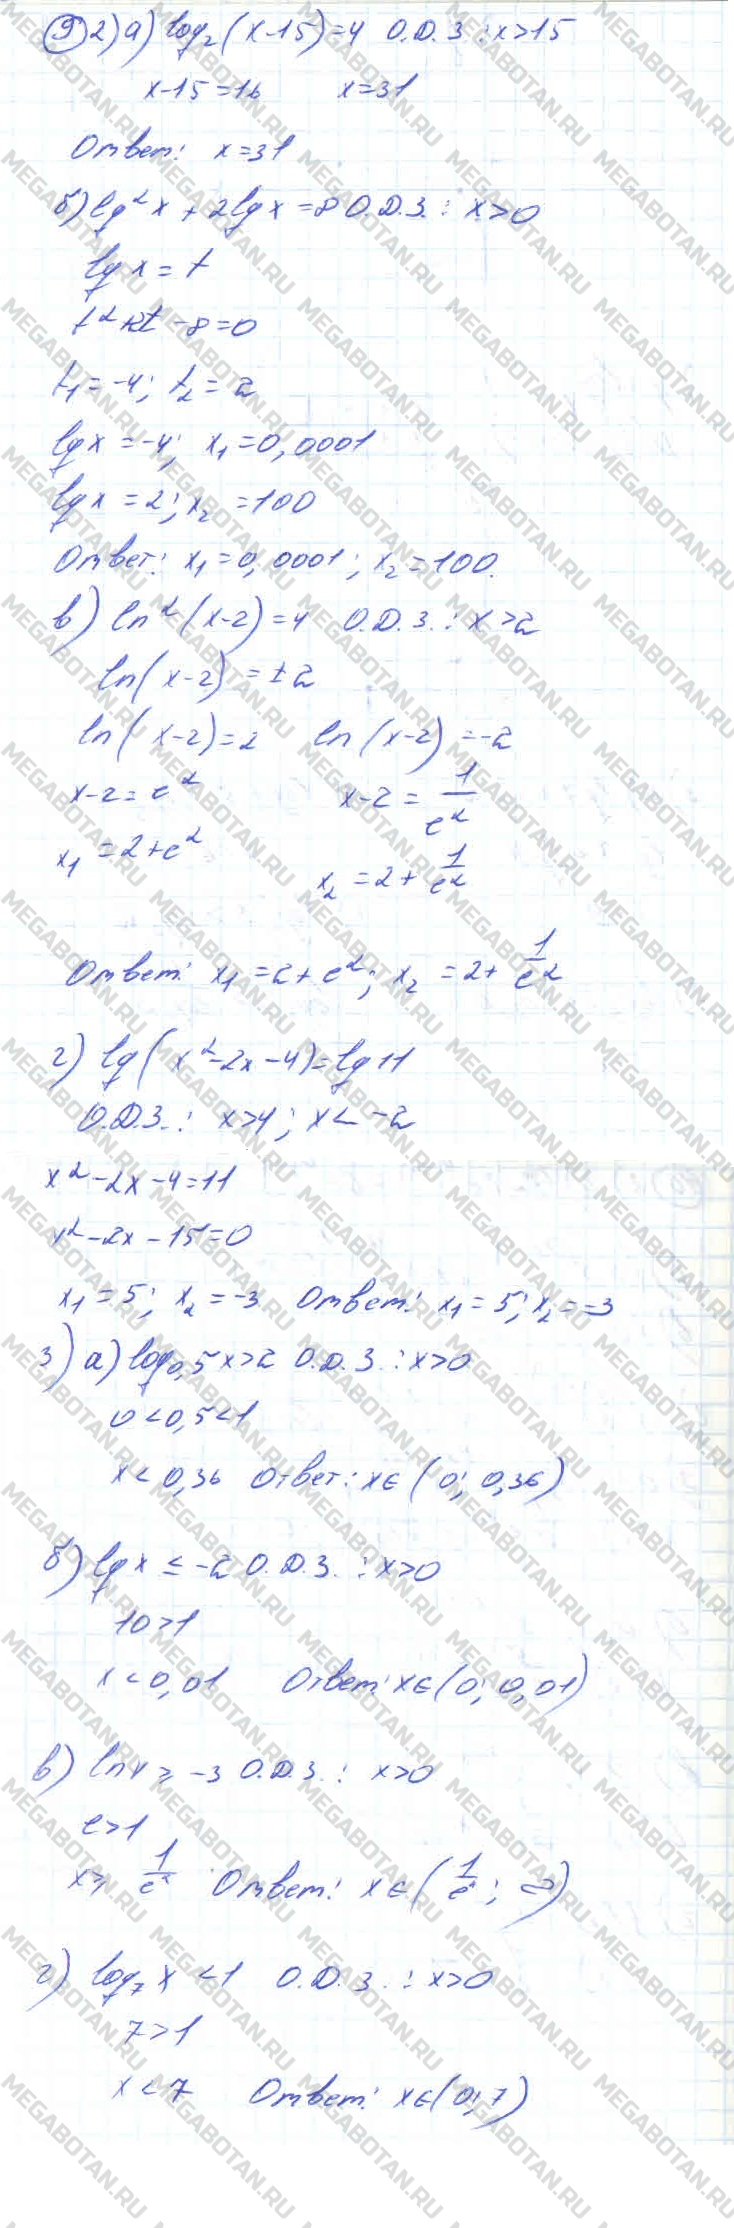 9 2) а) log₂(x-15)=4 О.Д.З.: x>15
x-15=16 x=31
Ответ: x=31
б) lg²x + 2lgx =8 О.Д.З.: x>0
lgx = t
t²+2t-8=0
t₁=-4; t₂=2
lgx = -4; x₁=0,0001
lgx = 2; x₂ =100
Ответ: x₁=0,0001; x₂=100.
в) ln²(x-2)=4 О.Д.З.: x>2
ln(x-2) = ±2
ln(x-2)=2 ln(x-2) =-2
x-2=e² x-2= 1/e²
x₁ =2+e² x₂ =2+ 1/e²
Ответ: x₁ =2+e²; x₂ =2+ 1/e²
г) lg(x²-2x-4)=lg11
О.Д.З.: x>4; x< -2
x²-2x-4=11
x²-2x-15=0
x₁=5; x₂=-3 Ответ: x₁=5; x₂=-3
3) а) log₀,₅x>2 О.Д.З.: x>0
0<0,5<1
x<0,36 Ответ: x∈(0; 0,36)
б) lgx ≤ -2 О.Д.З.: x>0
10>1
x<0,01 Ответ: x∈(0; 0,01)
в) lnx ≥ -3 О.Д.З.: x>0
e>1
Ответ: x∈
г) log₇x <1 О.Д.З.: x>0
7>1
x<7 Ответ: x∈(0; 7)
MEGABOTAN.RU